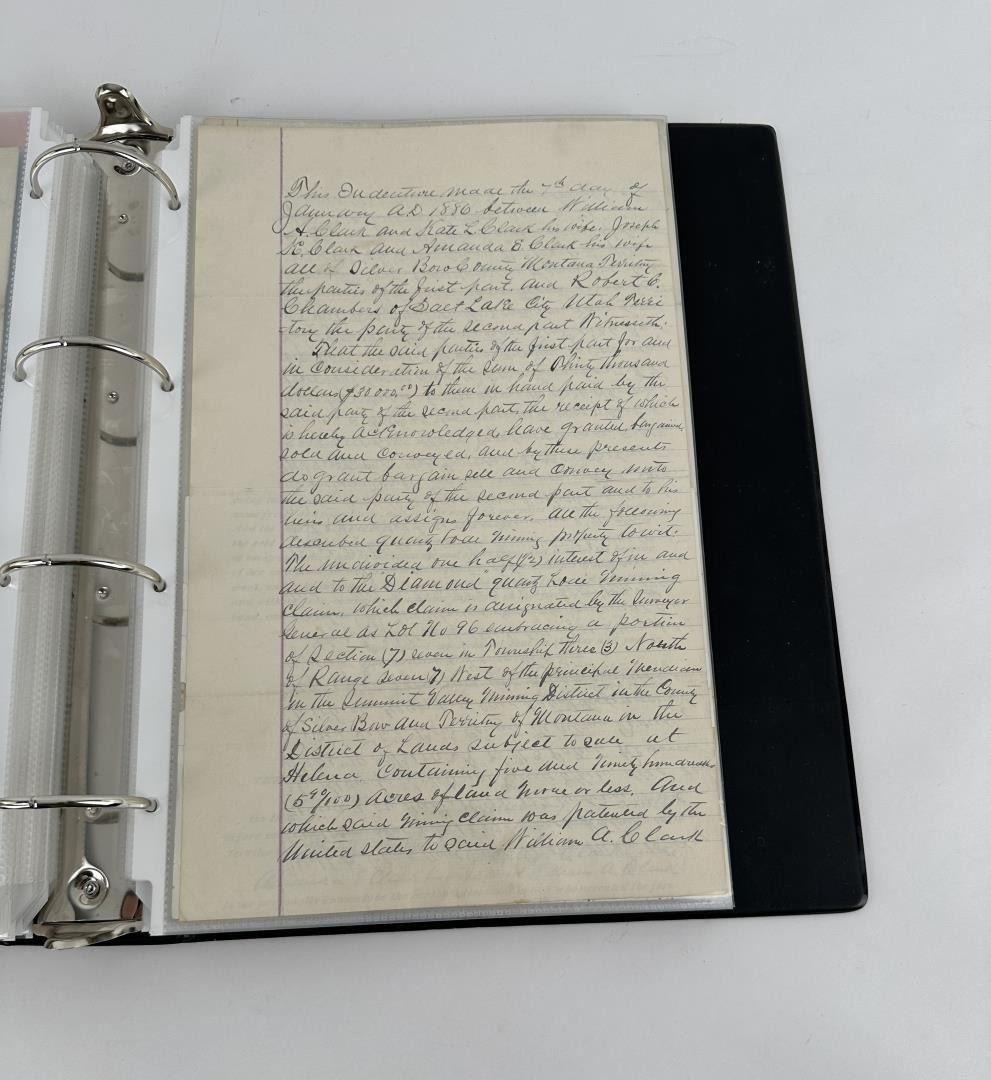 This Indenture made the 7th day of
January A.D. 1886 between William
A. Clark and Kate L Clark his wife, Joseph
K. Clark and Amanda E. Clark his wife
all of Silver Bow County Montana Territory
the parties of the first part, and Robert C.
Chambers of Salt Lake City Utah Terri
-tory the party of the second part Witnesseth:
That the said parties of the first part for and
in consideration of the sum of Thirty thousand
dollars ($30.000,00) to them in hand paid by the
said party of the second part, the receipt of which
is hereby acknowledged, have granted, bargained,
sold and conveyed, and by these presents
do grant bargain sell and convey unto
the said party of the second part and to his
heirs and assigns forever, all the following
described quartz lode mining property to wit:
The undivided one half (1/2) interest of in and
and to the "Diamond" quartz Lode Mining
Claim, which claim is designated by the Surveyor
General as Lot No 96 embracing a portion
of Section (7) seven in Township three (3) North
of Range Seven (7) West of the principal Meridian
in the Summit Valley Mining District in the County
of Silver Bow and Territory of Montana in the
District of Lands subject to sale at
Helena, containing five and Ninety hundredths
(5 90/100) Acres of land more or less. And
which said Mining Claim was patented by the
United States to said William A. Clark